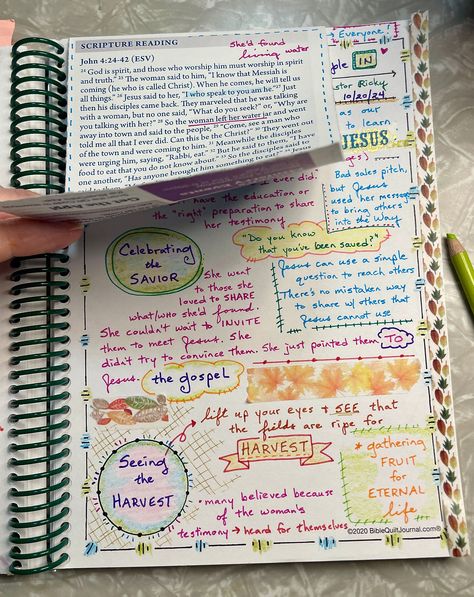 SCRIPTURE READING
John 4:24-42 (ESV)
24 God is spirit, and those who worship him must worship in spirit
and truth." 25 The woman said to him, "I know that Messiah is
coming (he who is called Christ). When he comes, he will tell us
all things." 26 Jesus said to her, "I who speak to you am he." 27 Just
then his disciples came back. They marveled that he was talking
with a woman, but no one said, "What do you seek?" or, "Why are
you talking with her?" 28 So the woman left her water jar and went
away into town and said to the people, 29 "Come, see a man who
told me all that I ever did. Can this be the Christ?" 30 They went
out of the town and were coming to him. 31 Meanwhile the disciples
were urging him, saying, "Rabbi, eat." 32 But he said to them, "I have
food to eat that you do not know about." 33 So the disciples said to
one another, "Has anyone brought him something to eat?"
She'd found
living water
Everyone!
IN
Ricky
10/20/24
as our
to learn
JESUS
Bad sales pitch,
but Jesus
used her message
to bring others
into the Way
ever did.
have the education or
the "right" preparation to share
her testimony
"Do you know
that you've been saved?"
Jesus can use a simple
question to reach others
There's no mistaken way
to share w/ others that
Jesus cannot use
Celebrating
the
SAVIOR
She went
to those she
loved to SHARE
what/who she'd found.
She couldn't wait to INVITE
them to meet Jesus. She
didn't try to convince them. She just pointed them TO
Jesus. the gospel
lift up your eyes + SEE that
the fields are ripe for
HARVEST
Seeing
the
HARVEST
• many believed because
of the woman's
testimony → heard for themselves
* gathering
FRUIT
for
ETERNAL
life
©2020 BibleQuiltJournal.com®